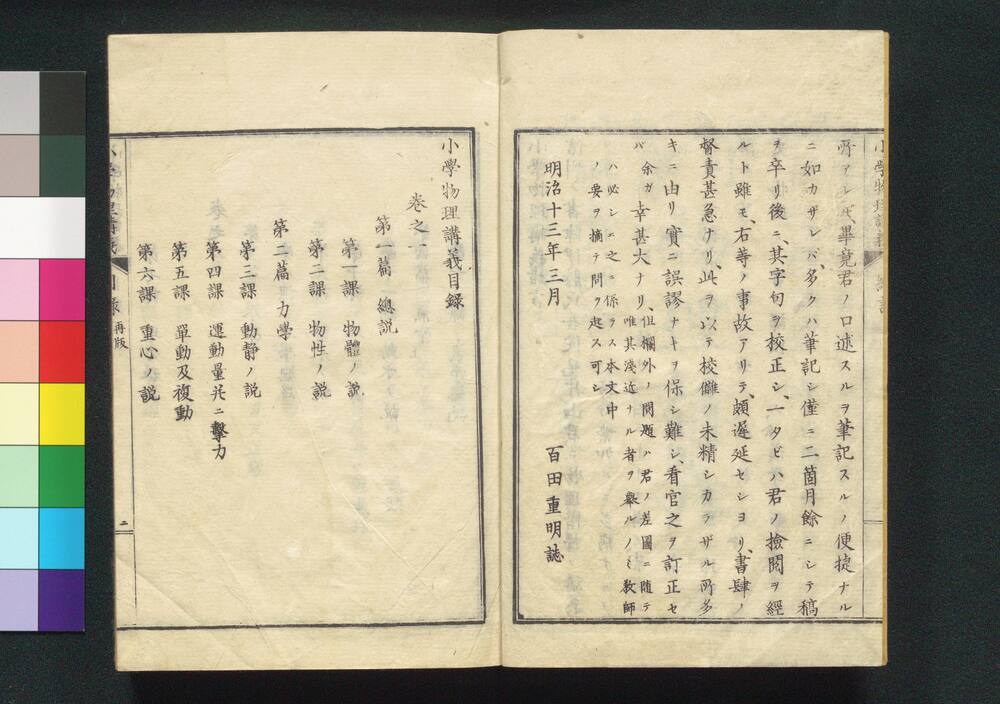 所アルモ、畢竟君ノ口述スルヲ筆記スルノ便捷ナル
ニ如カザレバ、多クハ筆記シ僅ニ二箇月餘ニシテ稿
ヲ卒リ後ニ、其字句ヲ校正シ、一タビハ君ノ撿閲ヲ經
ルト雖モ、右等ノ事故アリテ、頗遲延セシヨリ、書肆ノ
督責甚急ナリ、此ヲ以テ校讎ノ未精シカラザル所多
キニ由リ實ニ誤謬ナキヲ保シ難シ、看官之ヲ訂正セ
バ余ガ幸甚大ナリ、但欄外ノ問題ハ君ノ差圖ニ随テ
唯其淺近ナル者ヲ擧ルノミ教師
ハ必シモ之ニ係ラス本文中
ノ要ヲ摘テ問ヲ起ス可シ
明治十三年三月
百田重明誌
小學物理講義目録
卷之一
第一篇 總説
第一課 物體ノ説
第二課 物性ノ説
第二篇 力學
第三課 動靜ノ説
第四課 運動量并ニ擊力
第五課 單動及複動
第六課 重心ノ説
目録
再版
二